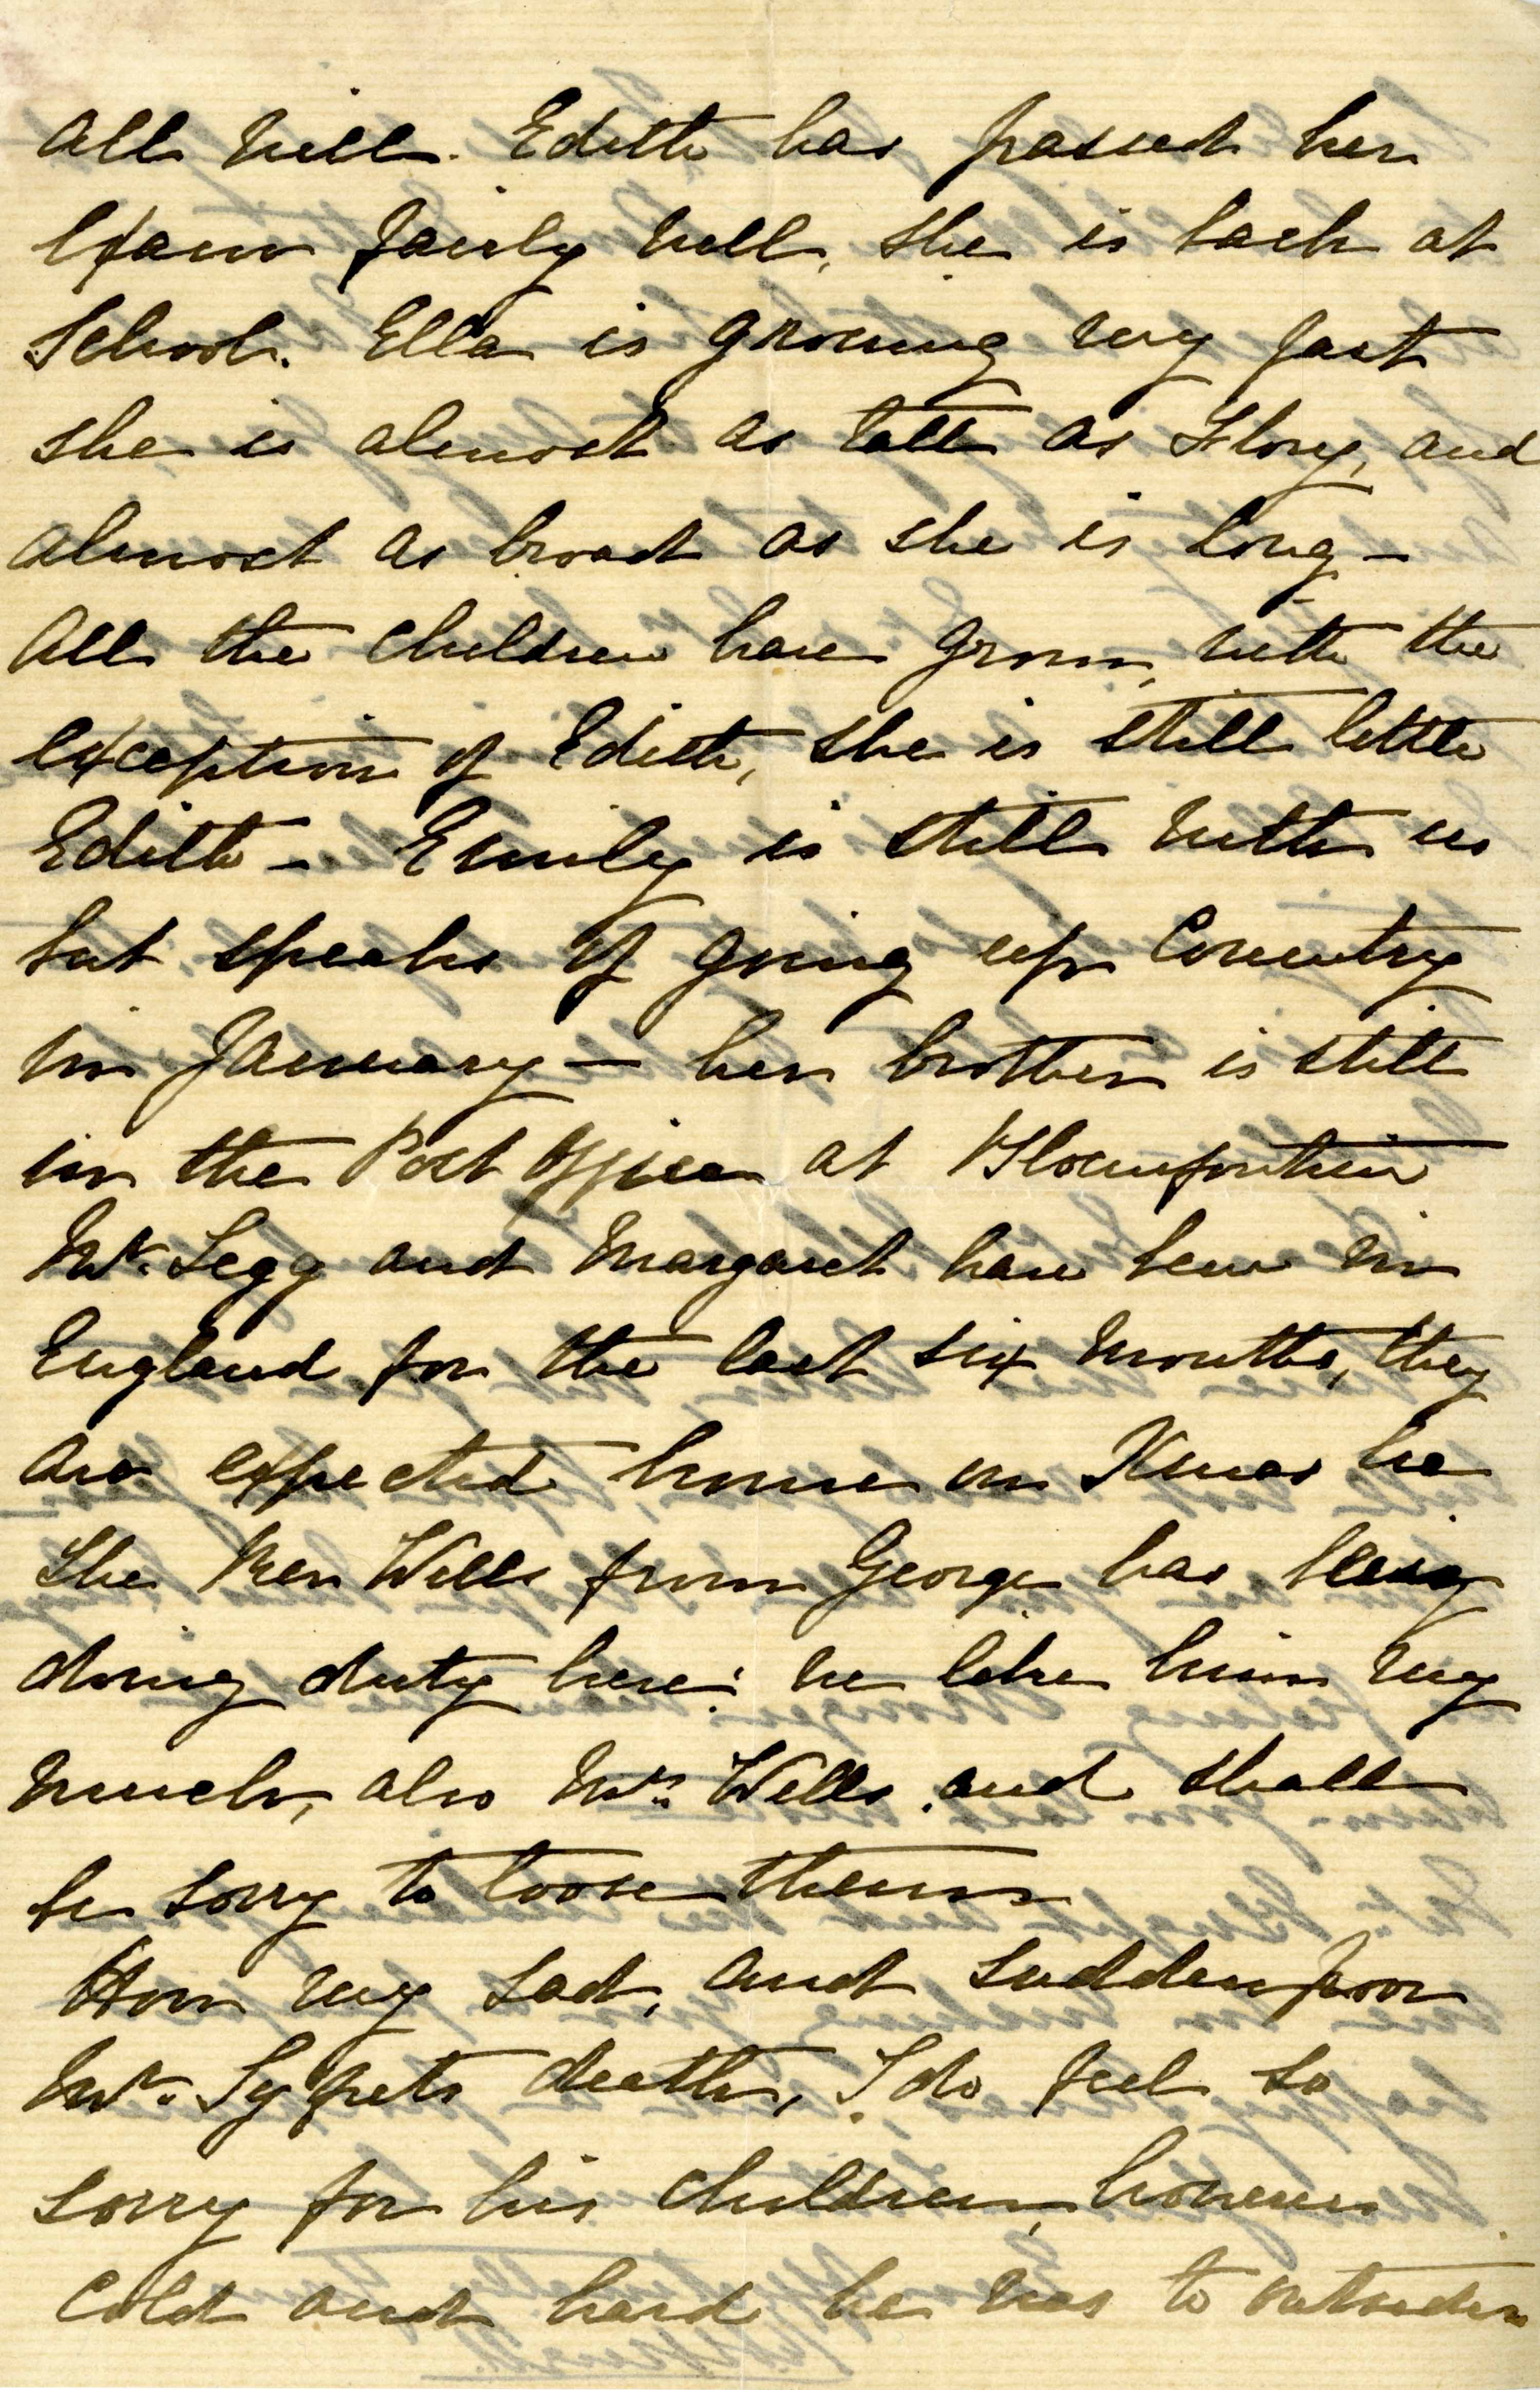 all well. Edith has passed her
Exam fairly well, she is back at
School. Ella is growing very fast
she is almost as tall as Flory, and
almost as broad as she is long –
All the children have grown, with the
exception of Edith, she is still little
Edith – Emily is still with us
but speaks of going up Country
in January – her brother is still
in the Post Office at Bloemfontein
Mr. Legg and Margaret have been in
England for the last six months, they
are expected home on Xmas
The Rev Wells from George has being
doing duty here: we like him very
much, also Mrs. Wells and shall
be sorry to loose them
How very sad, and sudden poor
Mr. Syfrets death, I do feel so
sorry for his children, however
Cold and hard he was to outsiders